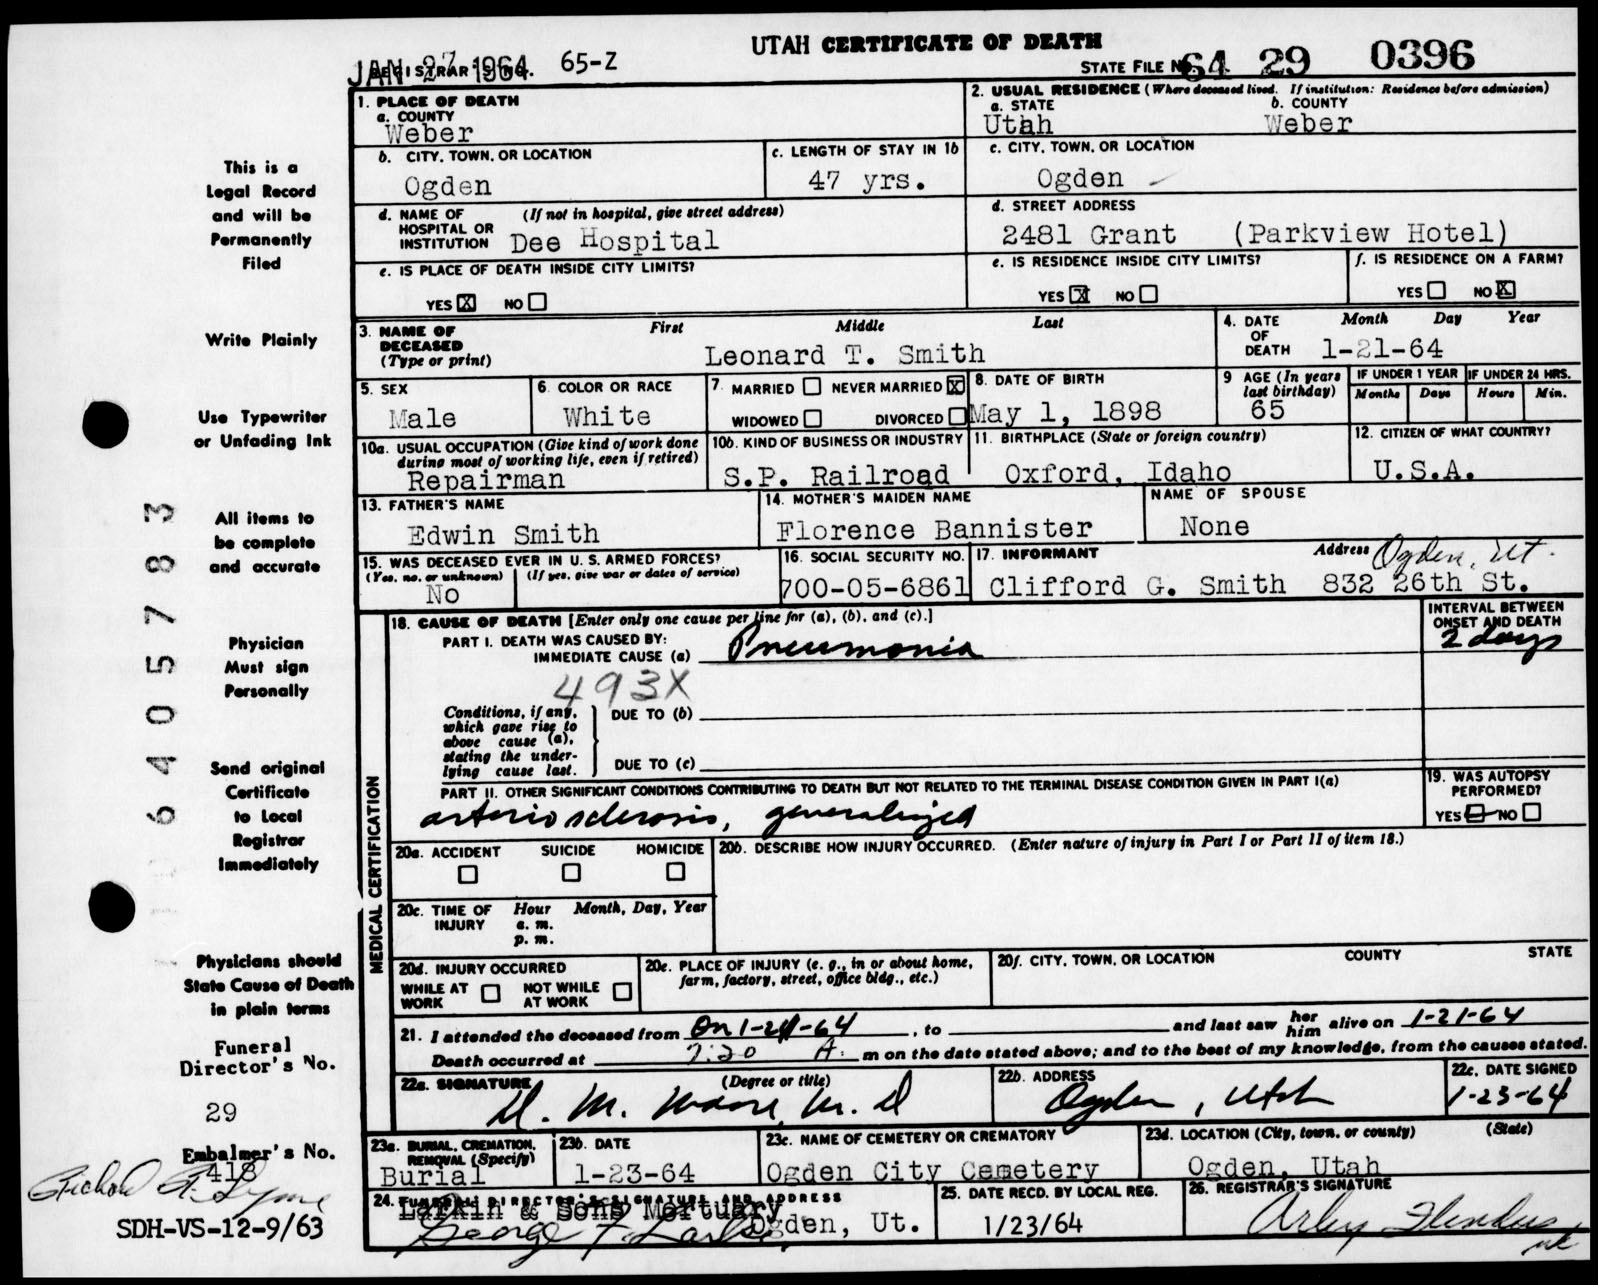 UTAH CERTIFICATE OF DEATH
JAN 27 1964 65-Z
REGISTRAR'S NO.
STATE FILE NO. 64 29 0396
1. PLACE OF DEATH
a. COUNTY
Weber
2. USUAL RESIDENCE (Where deceased lived. If institution: Residence before admission)
a. STATE b. COUNTY
Utah Weber
b. CITY, TOWN, OR LOCATION
Ogden
c. LENGTH OF STAY IN 1b
47 yrs.
c. CITY, TOWN, OR LOCATION
Ogden
d. NAME OF HOSPITAL OR INSTITUTION (If not in hospital, give street address)
Dee Hospital
d. STREET ADDRESS
2481 Grant (Parkview Hotel)
e. IS PLACE OF DEATH INSIDE CITY LIMITS?
YES X NO
e. IS RESIDENCE INSIDE CITY LIMITS?
YES X NO
f. IS RESIDENCE ON A FARM?
YES NO X
3. NAME OF DECEASED (Type or print) First Middle Last
Leonard T. Smith
4. DATE OF DEATH Month Day Year
1-21-64
5. SEX
Male
6. COLOR OR RACE
White
7. MARRIED NEVER MARRIED X
WIDOWED DIVORCED
8. DATE OF BIRTH
May 1, 1898
9 AGE (In years last birthday)
65
IF UNDER 1 YEAR IF UNDER 24 HRS.
Months Days Hours Min.
10a. USUAL OCCUPATION (Give kind of work done during most of working life, even if retired)
Repairman
10b. KIND OF BUSINESS OR INDUSTRY
S.P. Railroad
11. BIRTHPLACE (State or foreign country)
Oxford, Idaho
12. CITIZEN OF WHAT COUNTRY?
U.S.A.
13. FATHER'S NAME
Edwin Smith
14. MOTHER'S MAIDEN NAME
Florence Bannister
NAME OF SPOUSE
None
15. WAS DECEASED EVER IN U. S. ARMED FORCES?
(Yes, no, or unknown) (If yes, give war or dates of service)
No
16. SOCIAL SECURITY NO.
700-05-6861
17. INFORMANT Address Ogden, Ut.
Clifford G. Smith 832 26th St.
MEDICAL CERTIFICATION
18. CAUSE OF DEATH [Enter only one cause per line for (a), (b), and (c).]
INTERVAL BETWEEN ONSET AND DEATH
PART I. DEATH WAS CAUSED BY:
IMMEDIATE CAUSE (a) Pneumonia 2 days
493X
Conditions, if any, which gave rise to above cause (a), stating the underlying cause last.
DUE TO (b)
DUE TO (c)
PART II. OTHER SIGNIFICANT CONDITIONS CONTRIBUTING TO DEATH BUT NOT RELATED TO THE TERMINAL DISEASE CONDITION GIVEN IN PART I(a)
arteriosclerosis, generalized
19. WAS AUTOPSY PERFORMED?
YES NO
20a. ACCIDENT SUICIDE HOMICIDE
20b. DESCRIBE HOW INJURY OCCURRED. (Enter nature of injury in Part I or Part II of item 18.)
20c. TIME OF INJURY Hour Month, Day, Year
a. m.
p. m.
20d. INJURY OCCURRED
WHILE AT WORK NOT WHILE AT WORK
20e. PLACE OF INJURY (e. g., in or about home, farm, factory, street, office bldg., etc.)
20f. CITY, TOWN, OR LOCATION COUNTY STATE
21. I attended the deceased from On 1-21-64, to and last saw her him alive on 1-21-64
Death occurred at 7:20 A. m on the date stated above; and to the best of my knowledge, from the causes stated.
22a. SIGNATURE (Degree or title)
D. M. Moore, M. D
22b. ADDRESS
Ogden, Utah
22c. DATE SIGNED
1-23-64
23a. BURIAL, CREMATION, REMOVAL (Specify)
Burial
23b. DATE
1-23-64
23c. NAME OF CEMETERY OR CREMATORY
Ogden City Cemetery
23d. LOCATION (City, town, or county) (State)
Ogden, Utah
24. FUNERAL DIRECTOR'S SIGNATURE AND ADDRESS
Larkin & Sons Mortuary
Ogden, Ut.
25. DATE RECD. BY LOCAL REG.
1/23/64
26. REGISTRAR'S SIGNATURE
This is a
Legal Record
and will be
Permanently
Filed
Write Plainly
Use Typewriter
or Unfading Ink
All items to
be complete
and accurate
Physician
Must sign
Personally
Send original
Certificate
to Local
Registrar
Immediately
Physicians should
State Cause of Death
in plain terms
Funeral
Director's No.
29
Embalmer's No.
418
SDH-VS-12-9/63
6405783